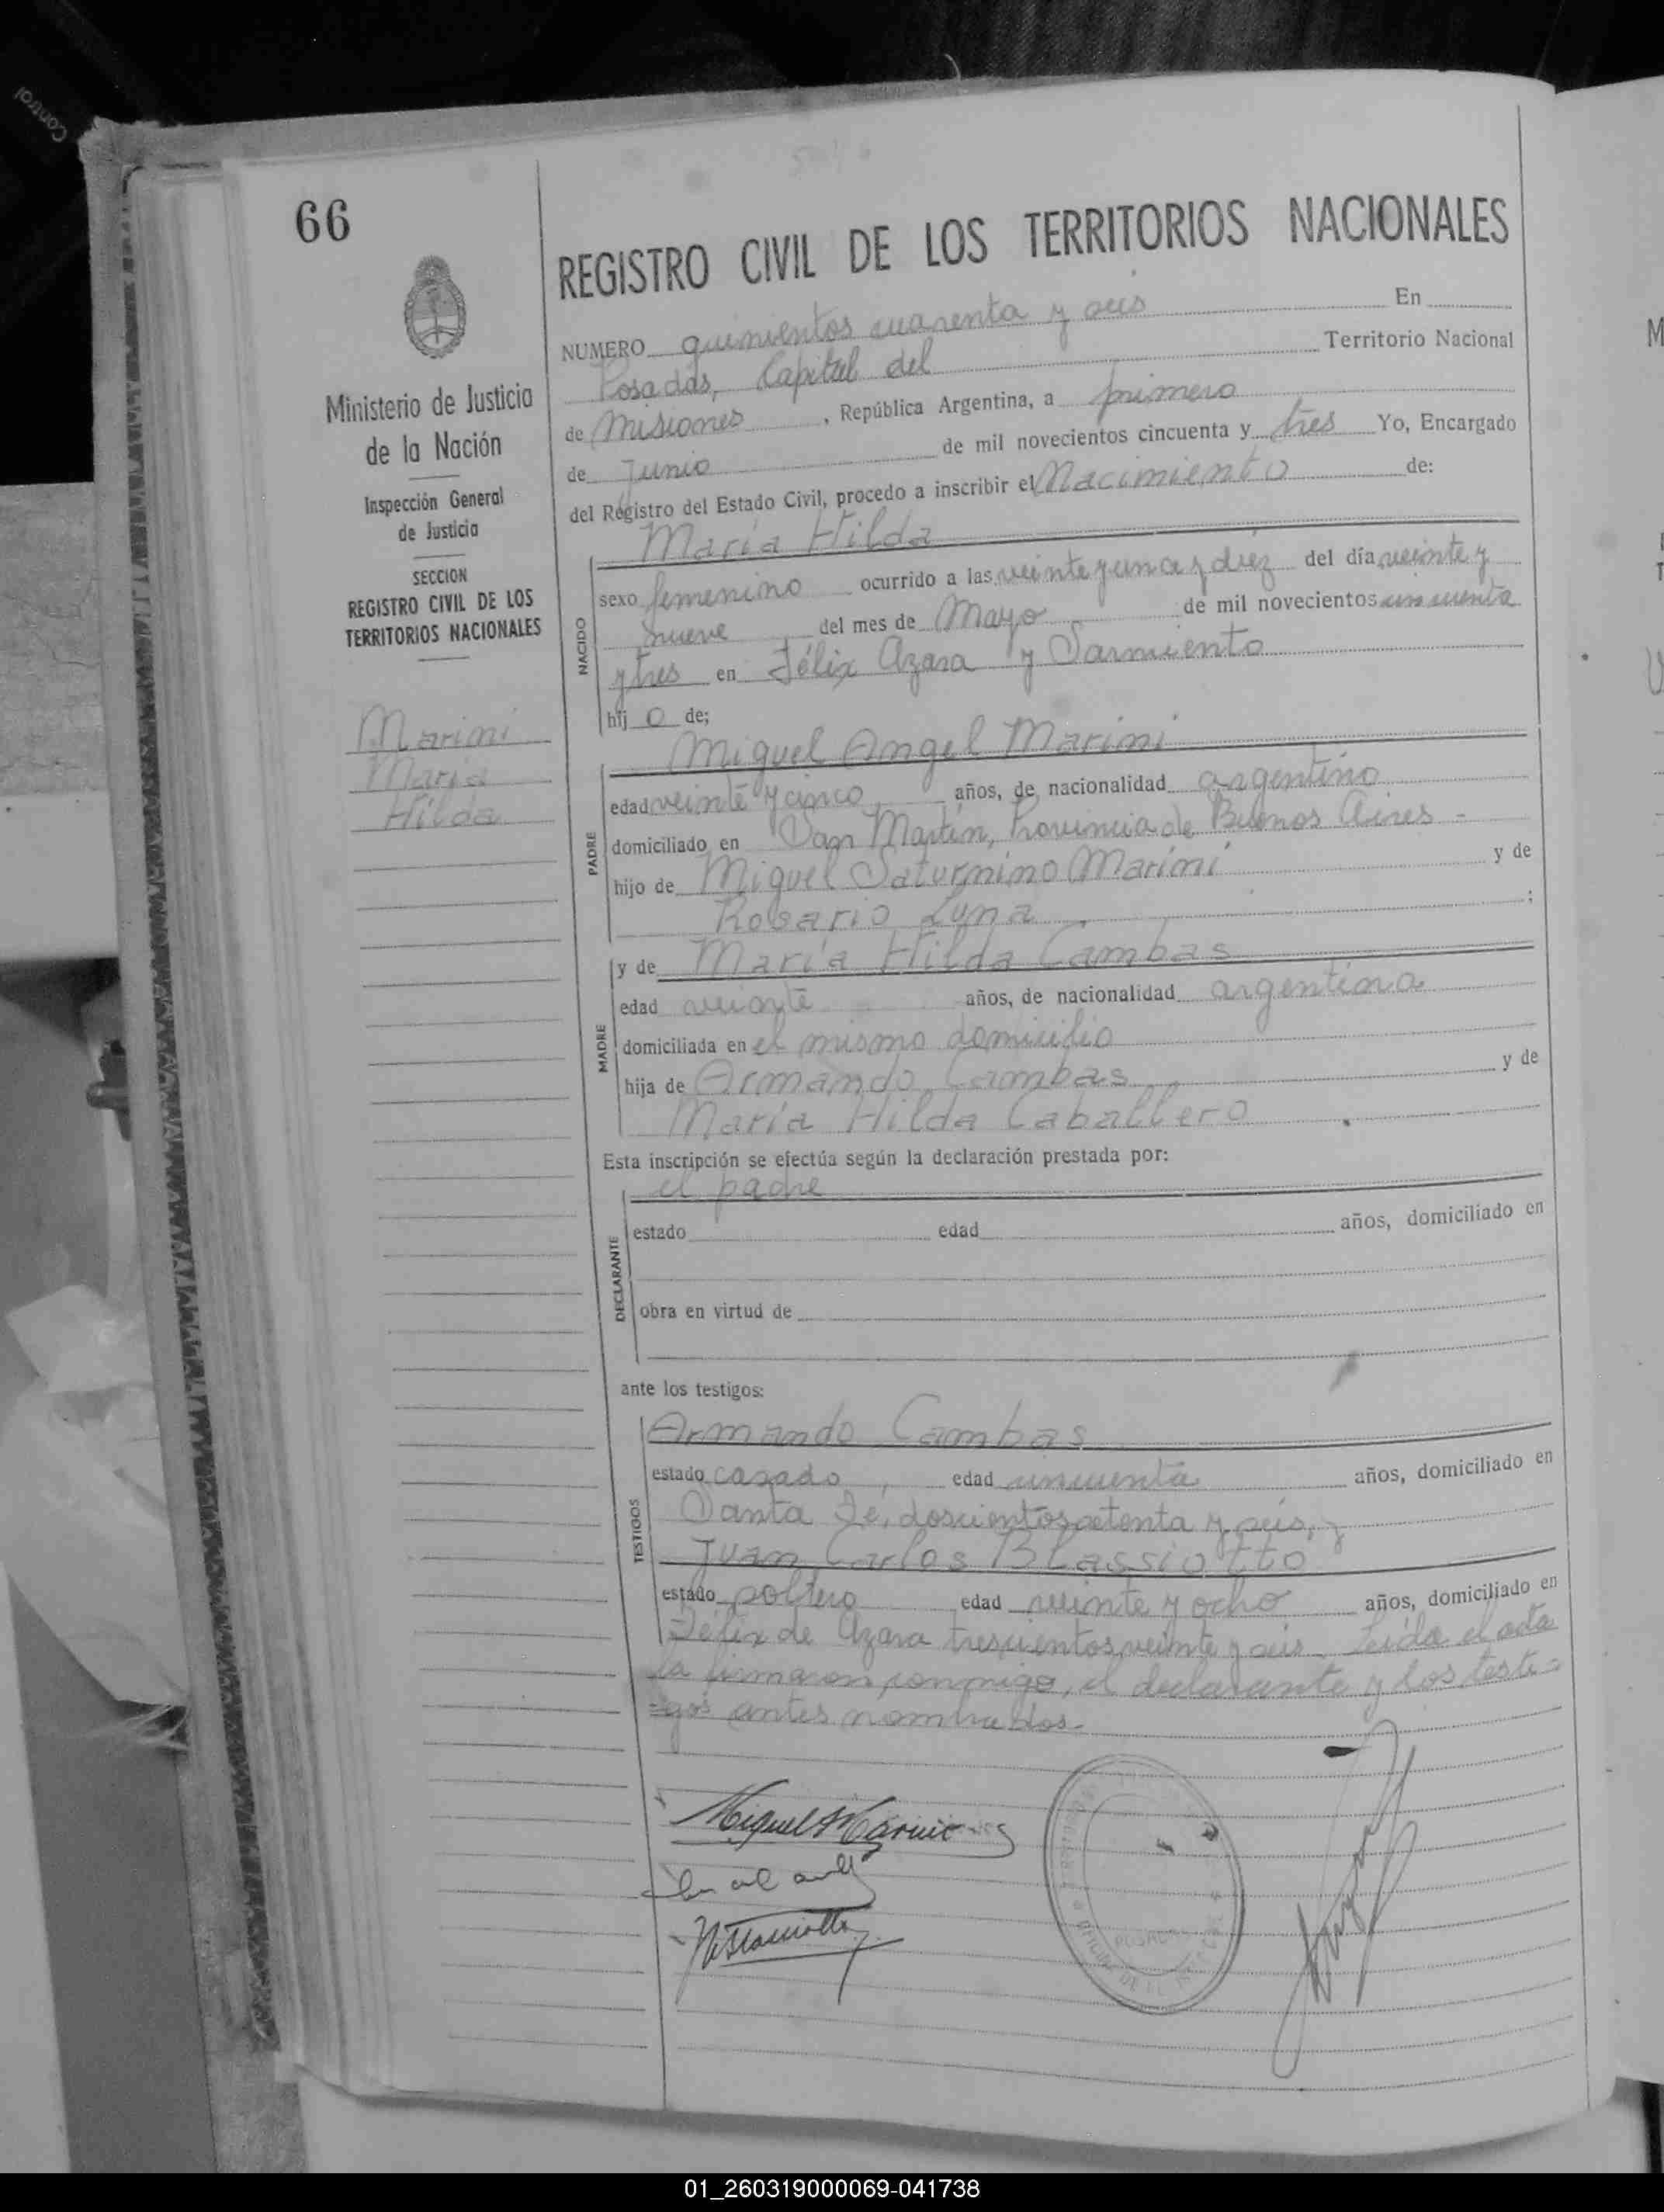 Control
66
REGISTRO CIVIL DE LOS TERRITORIOS NACIONALES
NUMERO quinientos cuarenta y seis En
Posadas, Capital del Territorio Nacional
de Misiones, República Argentina, a primero
de Junio de mil novecientos cincuenta y tres Yo, Encargado
del Registro del Estado Civil, procedo a inscribir el Nacimiento de:
Ministerio de Justicia
de la Nación
Inspección General
de Justicia
SECCION
REGISTRO CIVIL DE LOS
TERRITORIOS NACIONALES
Marini
María
Hilda
NACIDO
María Hilda
sexo femenino ocurrido a las veinte y una y diez del día veinte y
nueve del mes de Mayo de mil novecientos cincuenta
y tres en Félix Azara y Sarmiento
hij o de;
PADRE
Miguel Angel Marini
edad veinte y cinco años, de nacionalidad argentino
domiciliado en San Martín, Provincia de Buenos Aires -
hijo de Miguel Saturnino Marini y de
Rosario Luna ;
MADRE
y de María Hilda Cambas
edad veinte años, de nacionalidad argentina
domiciliada en el mismo domicilio
hija de Armando Cambas y de
María Hilda Caballero
Esta inscripción se efectúa según la declaración prestada por:
DECLARANTE
el padre
estado edad años, domiciliado en
obra en virtud de
ante los testigos:
TESTIGOS
Armando Cambas
estado casado, edad cincuenta años, domiciliado en
Santa Fé, doscientos setenta y seis, y
Juan Carlos Blassiotto
estado soltero edad veinte y ocho años, domiciliado en
Félix de Azara trescientos veinte y seis. Leída el acta
la firmaron conmigo, el declarante y los testi=
=gos antes nombrados.-
Miguel A Marini
POSADAS
OFICINA DE
01_260319000069-041738